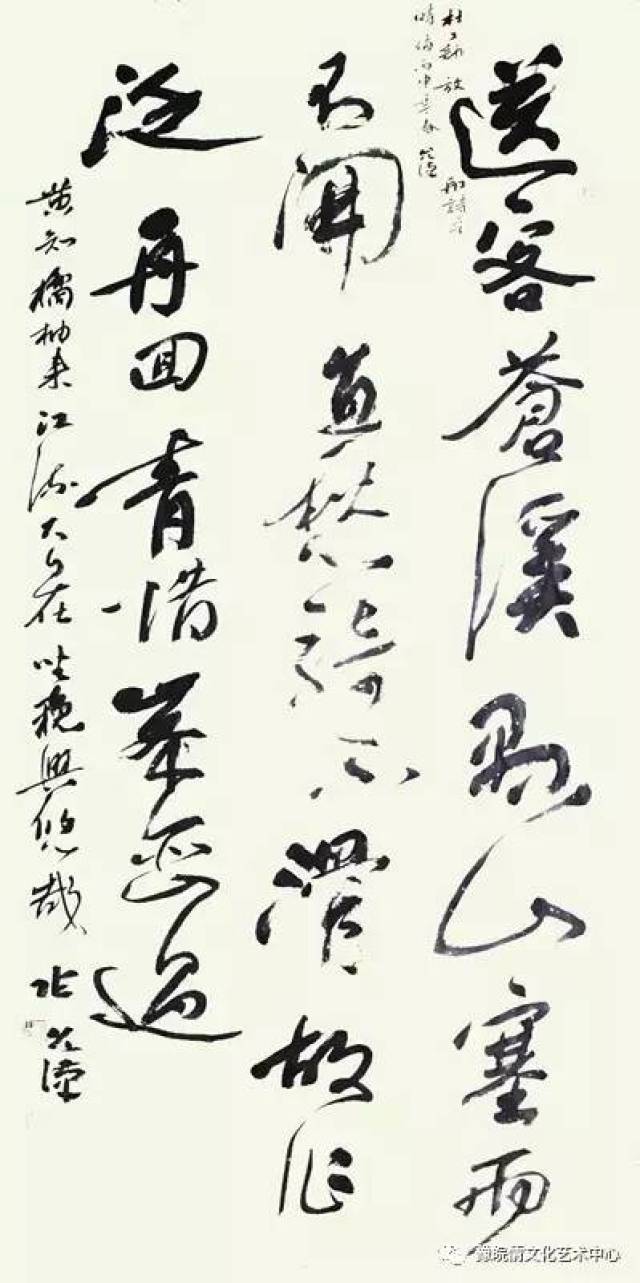 送客蒼溪縣山寒雨
不開直愁騎馬滑故作
泛舟回青惜峯巒過
黄知橘柚来江流大自在坐穩興悠哉
杜工部放船詩
豫皖情文化艺术中心